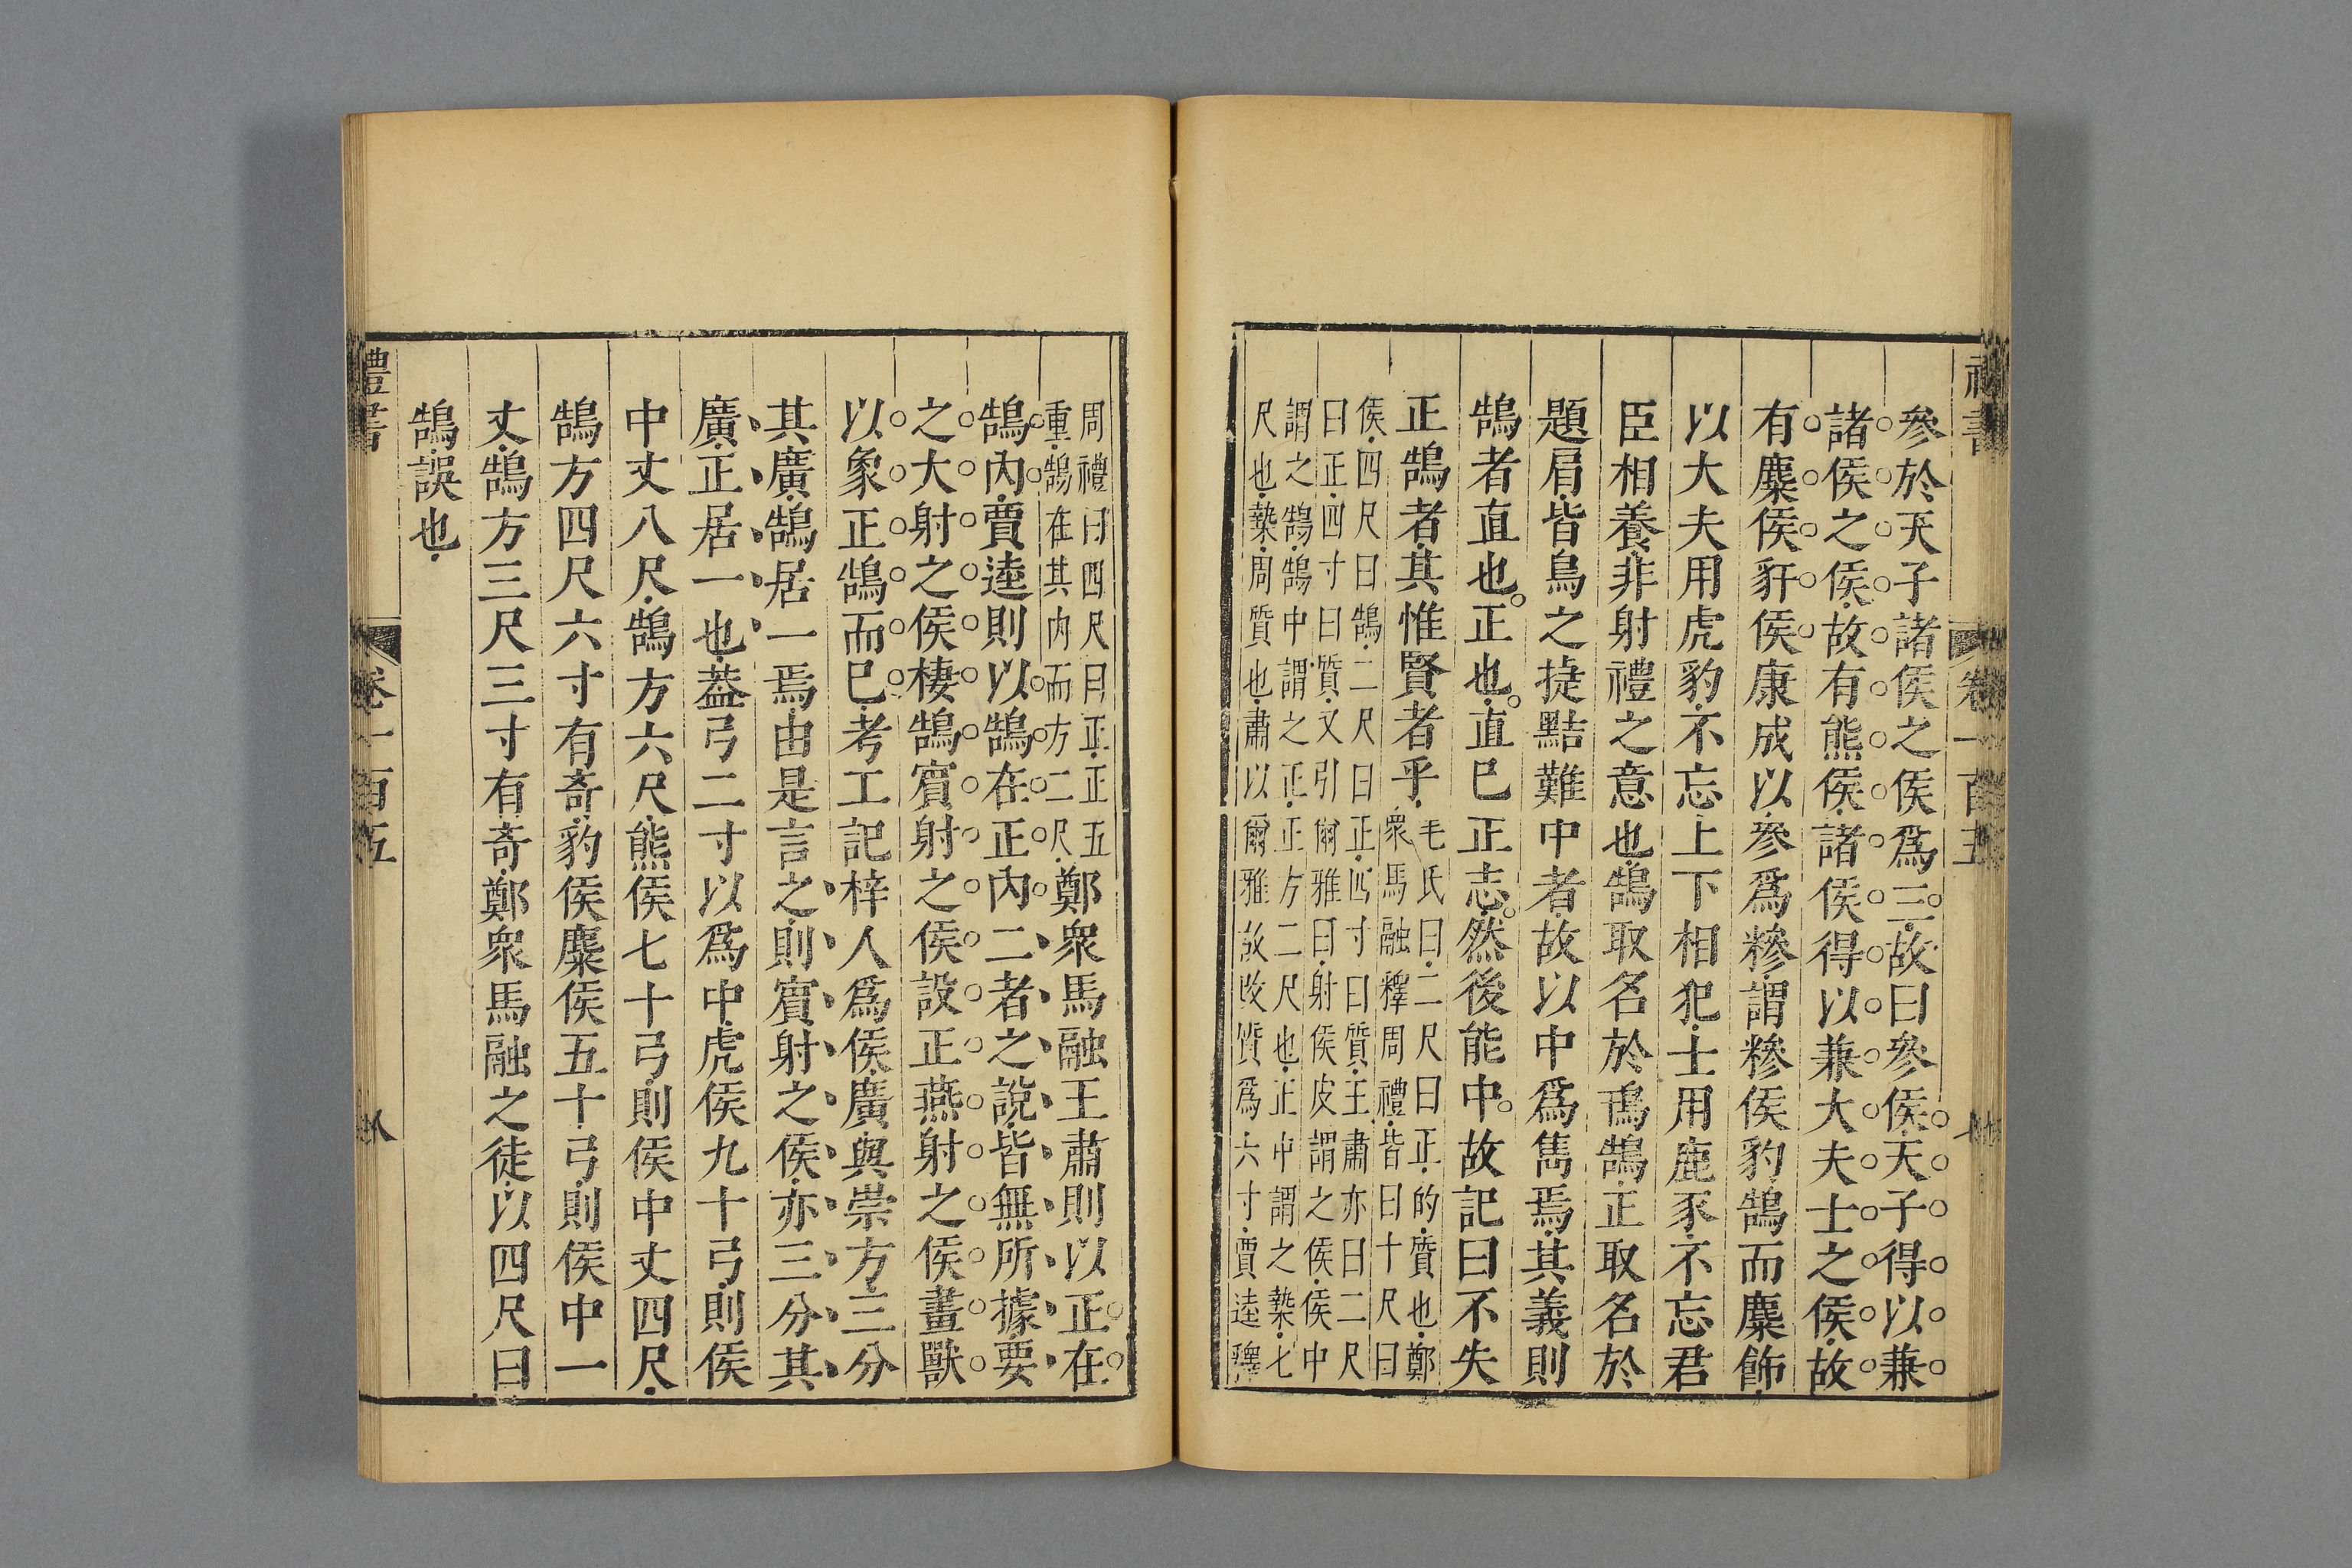 禮書
卷一百五
參於天子諸侯之侯爲三故曰參侯天子得以兼
諸侯之侯故有熊侯諸侯得以兼大夫士之侯故
有麋侯豻侯康成以參爲糝謂糝侯豹鵠而麋飾
以大夫用虎豹不忘上下相犯士用鹿豕不忘君
臣相養非射禮之意也鵠取名於鳱鵠正取名於
題肩皆鳥之捷點難中者故以中爲雋焉其義則
鵠者直也正也直己正志然後能中故記曰不失
正鵠者其惟賢者乎
毛氏曰二尺曰正的質也鄭
衆馬融釋周禮皆曰十尺曰
侯四尺曰鵠二尺曰正四寸曰質王肅亦曰二尺
曰正四寸曰質又引爾雅曰射侯皮謂之侯侯中
謂之鵠鵠中謂之正正方二尺也正中謂之槷七
尺也槷周質也肅以爾雅故改質爲六寸賈逵釋
周禮曰四尺曰正正五
重鵠在其內而方二尺
鄭衆馬融王肅則以正在
鵠內賈逵則以鵠在正內二者之說皆無所據要
之大射之侯棲鵠賓射之侯設正燕射之侯畫獸
以象正鵠而已考工記梓人爲侯廣與崇方三分
其廣鵠居一焉由是言之則賓射之侯亦三分其
廣正居一也葢弓二寸以爲中虎侯九十弓則侯
中丈八尺鵠方六尺熊侯七十弓則侯中丈四尺
鵠方四尺六寸有奇豹侯麋侯五十弓則侯中一
丈鵠方三尺三寸有奇鄭衆馬融之徒以四尺曰
鵠誤也
禮書
卷一百五
八